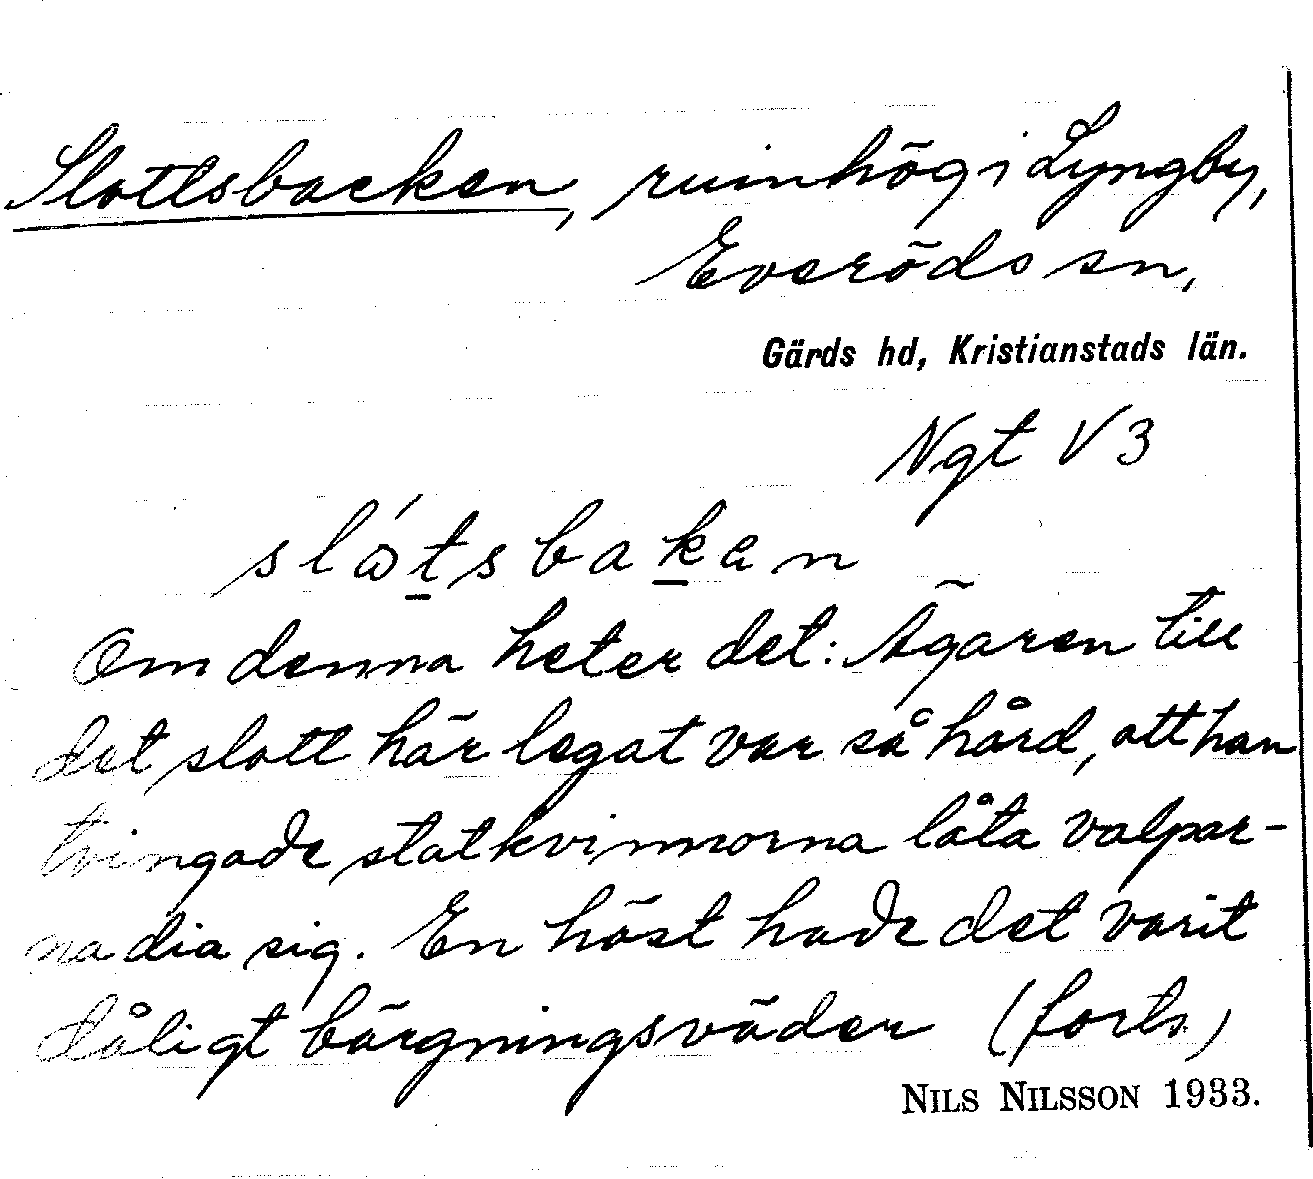 Slottsbacken, ruinhög i Lyngby,
Everöds sn,
Gärds hd, Kristianstads län.
Ngt V 3
slɷ́t̲sbak̲an
Om denna heter det: Ägaren till
det slott här legat var så hård, att han
tvingade statkvinnorna låta valpar-
na dia sig. En höst hade det varit
dåligt bärgningsväder (forts)
NILS NILSSON 1933.